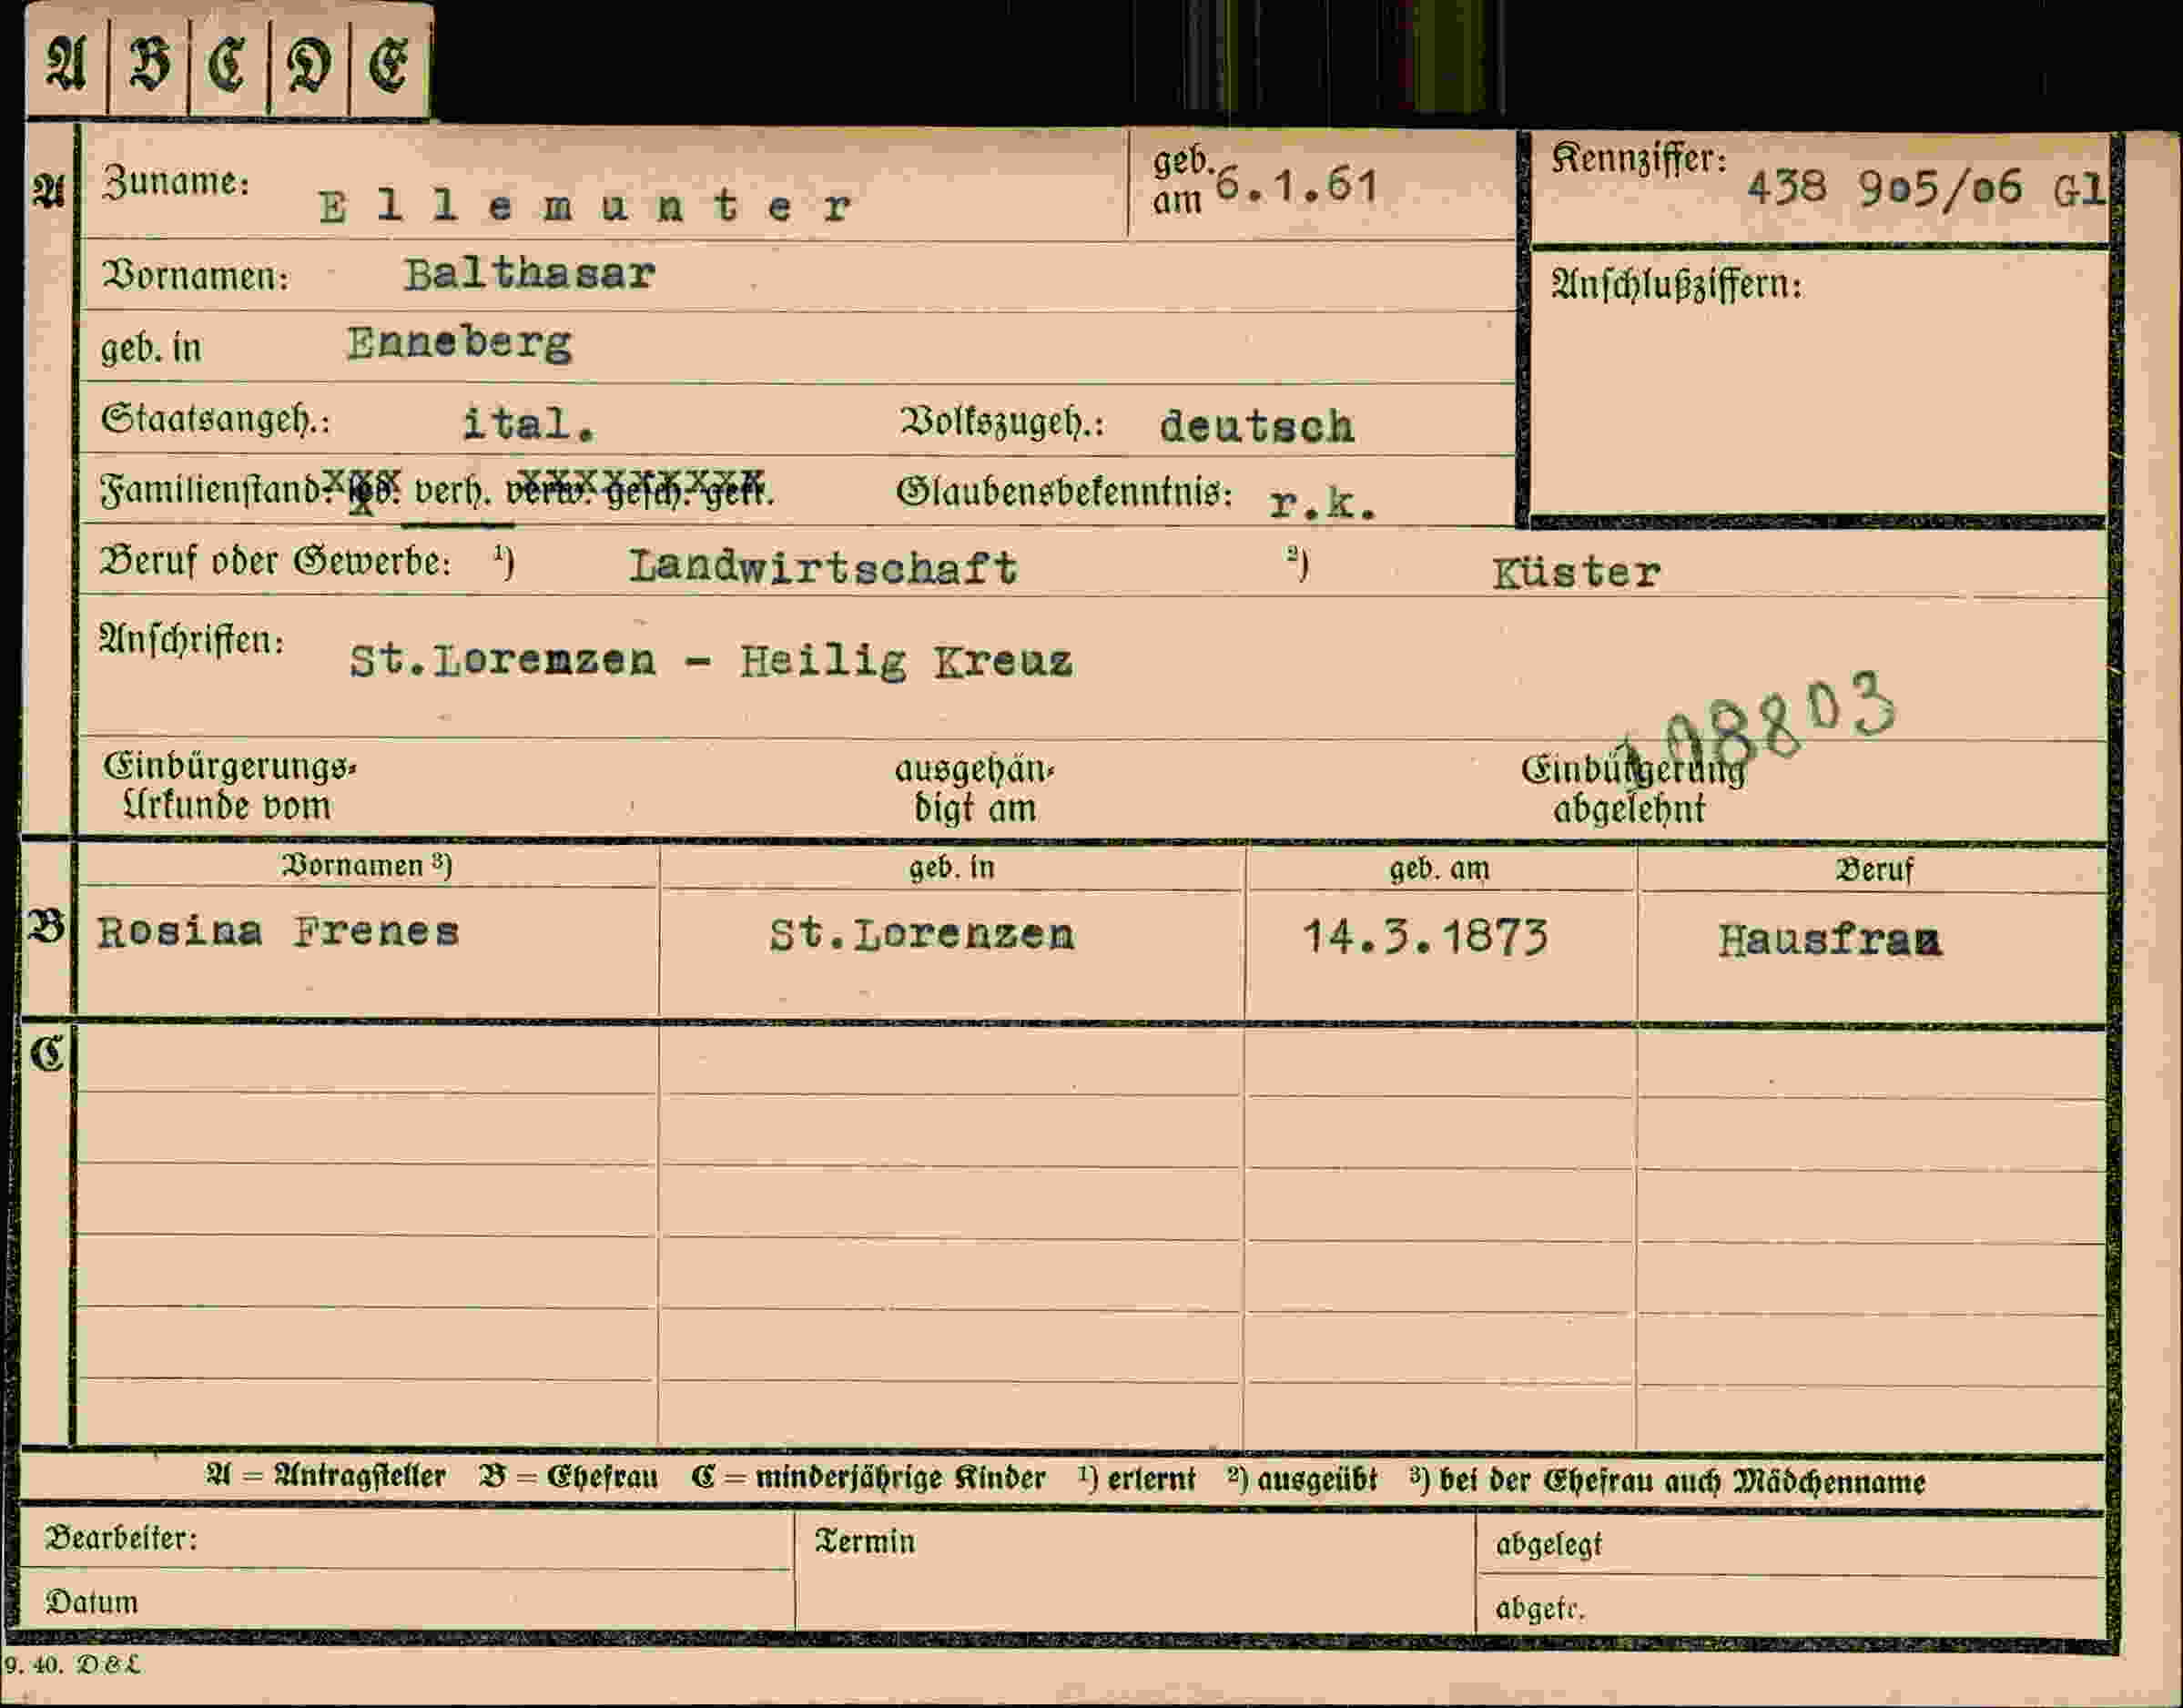 A B C D E
A Zuname: Ellemunter geb. am 6.1.61 Kennziffer: 438 905/06 Gl
Vornamen: Balthasar Anschlußziffern:
geb. in Enneberg
Staatsangeh.: ital. Volkszugeh.: deutsch
Familienstand: led. verh. verw. gesch. getr. Glaubensbekenntnis: r.k.
Beruf oder Gewerbe: ¹) Landwirtschaft ²) Küster
Anschriften: St.Lorenzen - Heilig Kreuz
108803
Einbürgerungs- ausgehän- Einbürgerung
Urkunde vom digt am abgelehnt
Vornamen ³) geb. in geb. am Beruf
B Rosina Frenes St.Lorenzen 14.3.1873 Hausfrau
C
A = Antragsteller B = Ehefrau C = minderjährige Kinder ¹) erlernt ²) ausgeübt ³) bei der Ehefrau auch Mädchenname
Bearbeiter: Termin abgelegt
Datum abgetr.
9. 40. D&L